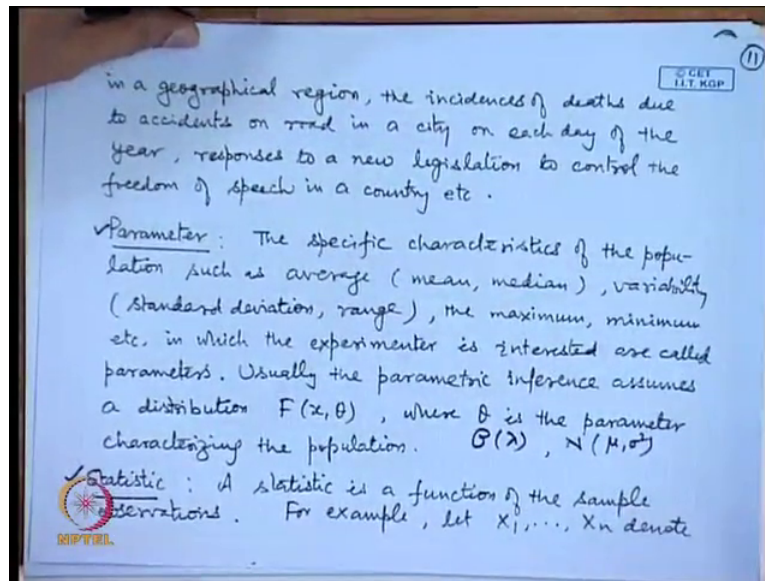 11
© CET
I.I.T. KGP
in a geographical region, the incidences of deaths due
to accidents on road in a city on each day of the
year, responses to a new legislation to control the
freedom of speech in a country etc.
✓Parameter : The specific characteristics of the popu-
lation such as average (mean, median), variability
(standard deviation, range), the maximum, minimum
etc. in which the experimenter is interested are called
parameters. Usually the parametric inference assumes
a distribution F(x, θ), where θ is the parameter
characterizing the population. P(λ), N(μ, σ²)
✓Statistic : A statistic is a function of the sample
observations. For example, let X₁, ..., Xn denote
NPTEL